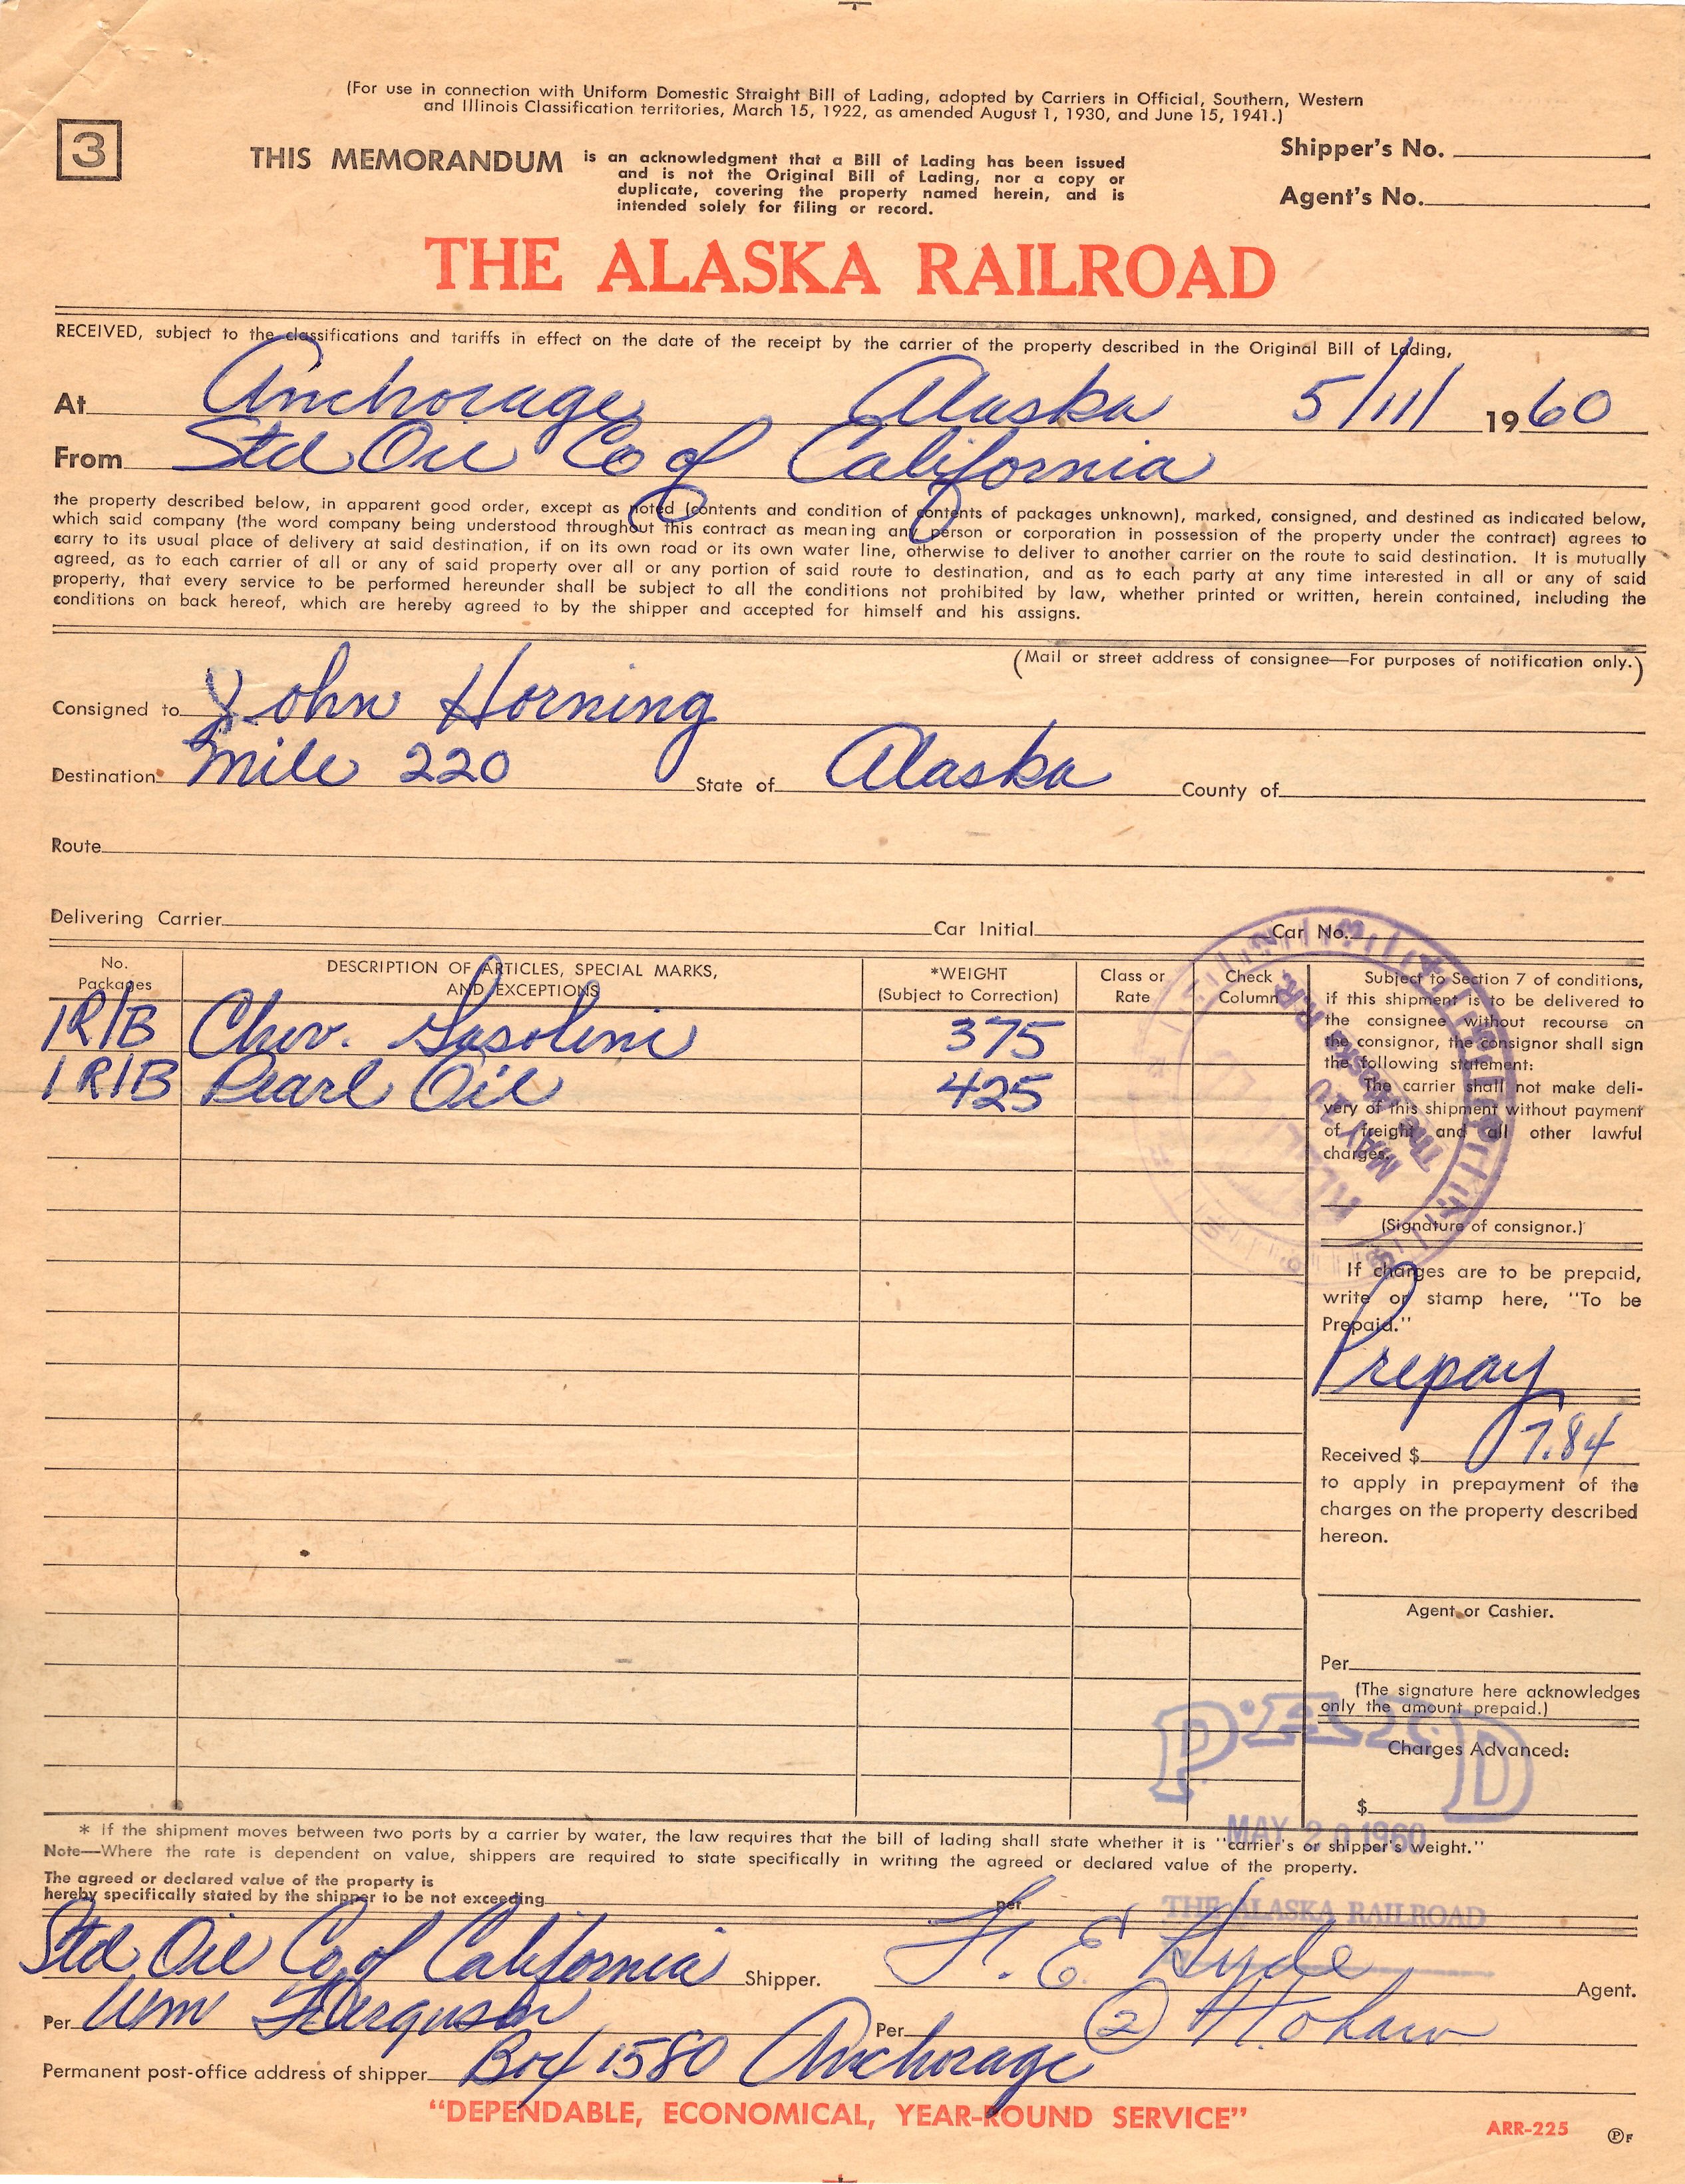 (For use in connection with Uniform Domestic Straight Bill of Lading, adopted by Carriers in Official, Southern, Western
and Illinois Classification territories, March 15, 1922, as amended August 1, 1930, and June 15, 1941.)
3
THIS MEMORANDUM is an acknowledgment that a Bill of Lading has been issued
and is not the Original Bill of Lading, nor a copy or
duplicate, covering the property named herein, and is
intended solely for filing or record.
Shipper's No.
Agent's No.
THE ALASKA RAILROAD
RECEIVED, subject to the classifications and tariffs in effect on the date of the receipt by the carrier of the property described in the Original Bill of Lading,
At Anchorage Alaska 5/11/ 1960
From Std Oil Co of California
the property described below, in apparent good order, except as noted (contents and condition of contents of packages unknown), marked, consigned, and destined as indicated below,
which said company (the word company being understood throughout this contract as meaning any person or corporation in possession of the property under the contract) agrees to
carry to its usual place of delivery at said destination, if on its own road or its own water line, otherwise to deliver to another carrier on the route to said destination. It is mutually
agreed, as to each carrier of all or any of said property over all or any portion of said route to destination, and as to each party at any time interested in all or any of said
property, that every service to be performed hereunder shall be subject to all the conditions not prohibited by law, whether printed or written, herein contained, including the
conditions on back hereof, which are hereby agreed to by the shipper and accepted for himself and his assigns.
(Mail or street address of consignee—For purposes of notification only.)
Consigned to John Horning
Destination Mile 220 State of Alaska County of
Route
Delivering Carrier Car Initial Car No.
No. Packages
DESCRIPTION OF ARTICLES, SPECIAL MARKS,
AND EXCEPTIONS
*WEIGHT
(Subject to Correction)
Class or
Rate
Check
Column
1 R/B Chev. Gasoline 375
1 R/B Pearl Oil 425
Subject to Section 7 of conditions,
if this shipment is to be delivered to
the consignee without recourse on
the consignor, the consignor shall sign
the following statement:
The carrier shall not make deli-
very of this shipment without payment
of freight and all other lawful
charges.
The Alaska R.R.
MAY 10
(Signature of consignor.)
If charges are to be prepaid,
write or stamp here, "To be
Prepaid."
Prepay
Received $ 7.84
to apply in prepayment of the
charges on the property described
hereon.
Agent or Cashier.
Per
(The signature here acknowledges
only the amount prepaid.)
PAID
Charges Advanced:
$
MAY 20 1960
* If the shipment moves between two ports by a carrier by water, the law requires that the bill of lading shall state whether it is "carrier's or shipper's weight."
Note—Where the rate is dependent on value, shippers are required to state specifically in writing the agreed or declared value of the property.
The agreed or declared value of the property is
hereby specifically stated by the shipper to be not exceeding per
THE ALASKA RAILROAD
Std Oil Co of California Shipper. E Hyde Agent.
Per Wm Ferguson Per 2
Permanent post-office address of shipper Box 1580 Anchorage
"DEPENDABLE, ECONOMICAL, YEAR-ROUND SERVICE"
ARR-225 PF